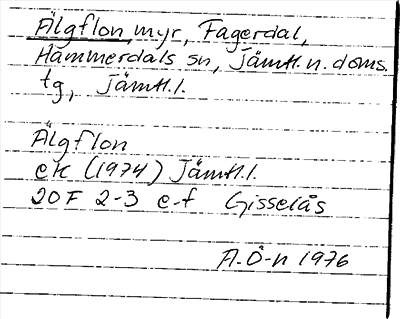 Älgflon, myr, Fagerdal,
Hammerdals sn, Jämtl. n. doms.
tg, Jämtl. l.
Älgflon
ek (1974) Jämtl. l.
20F 2-3 e-f Gisselås
A. Ö-n 1976